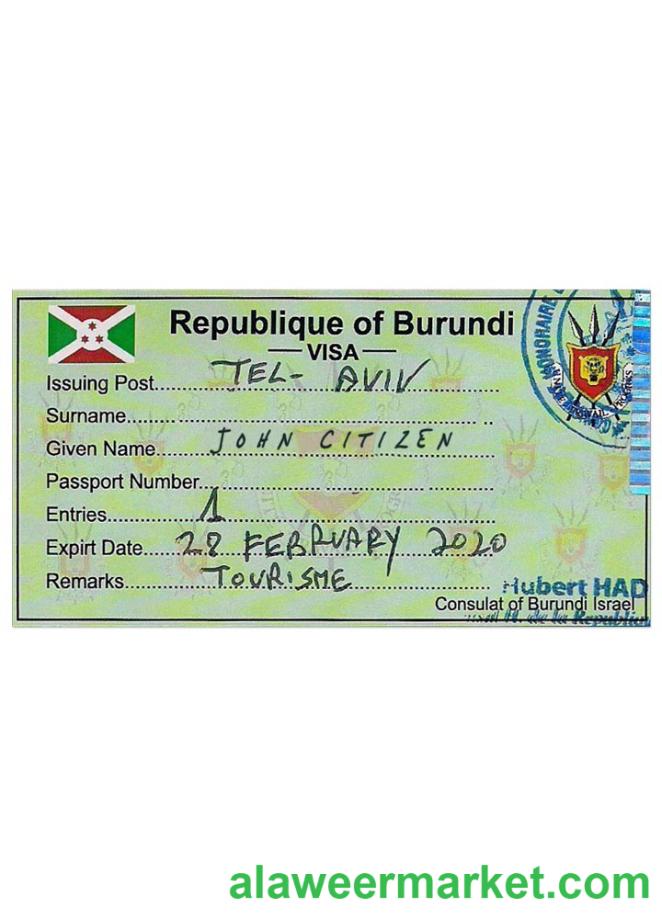 Republique of Burundi
VISA
Issuing Post TEL- AVIV
Surname
Given Name JOHN CITIZEN
Passport Number
Entries 1
Expirt Date 28 FEBRUARY 2020
Remarks TOURISME
Hubert HAD
Consulat of Burundi Israel
de la Republi
alaweermarket.com